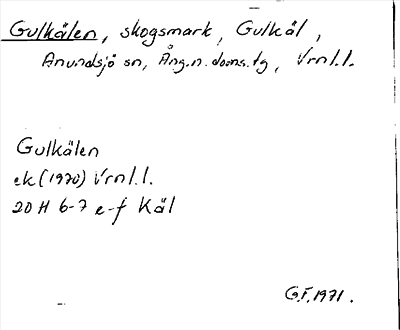 Gulkälen, skogsmark, Gulkäl,
Anundsjö sn, Ång.n.doms.tg, Vrnl.l.
Gulkälen
ek (1970) Vrnl.l.
20 H 6-7 e-f Käl
G.F. 1971.